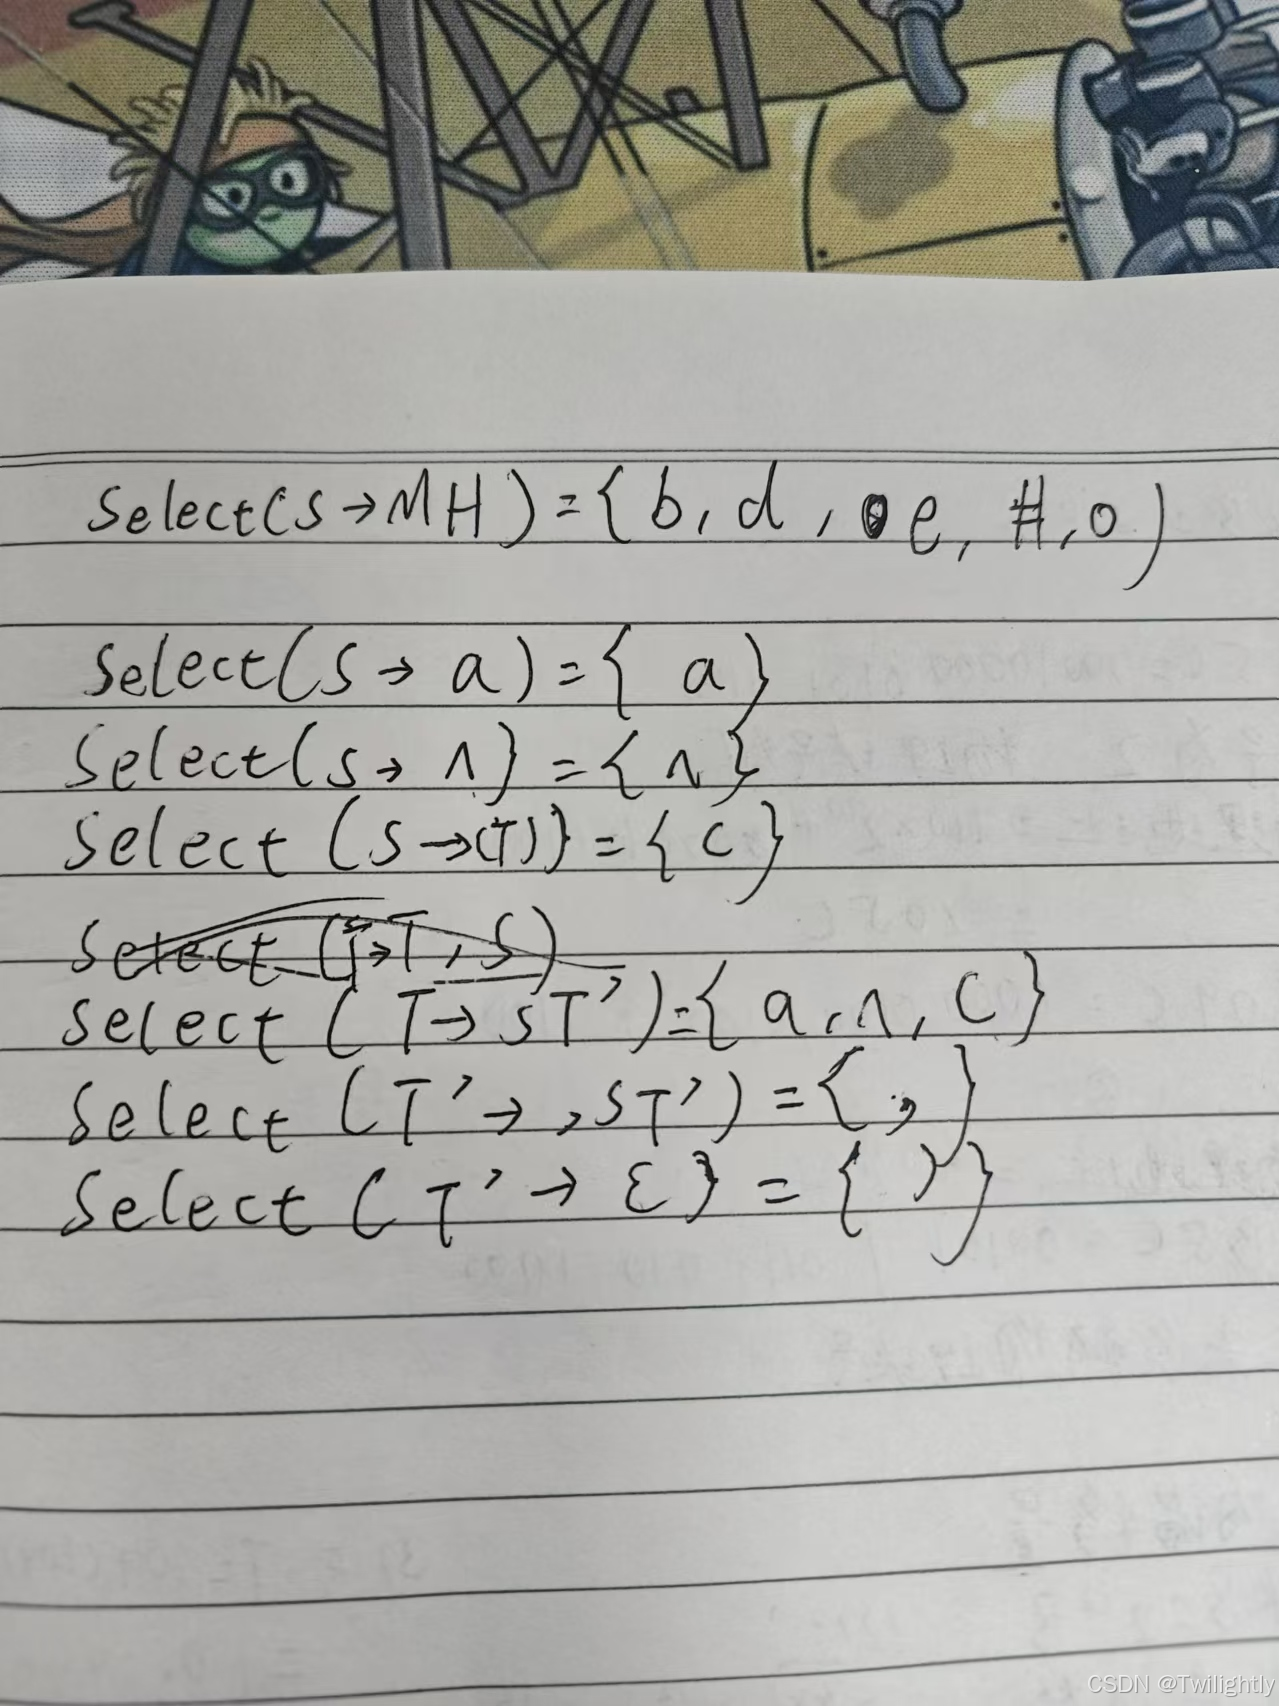 Select(S→MH)={b, d, e, #, o)
Select(S→ a)={ a}
Select(S→ ∧}={∧}
Select (S→(T)}={(}
Select (S→T, S)
Select ( T→ ST')={ a, ∧, (}
Select (T'→ ,ST')={ , }
Select ( T'→ ε}={ )}
CSDN @Twilightly